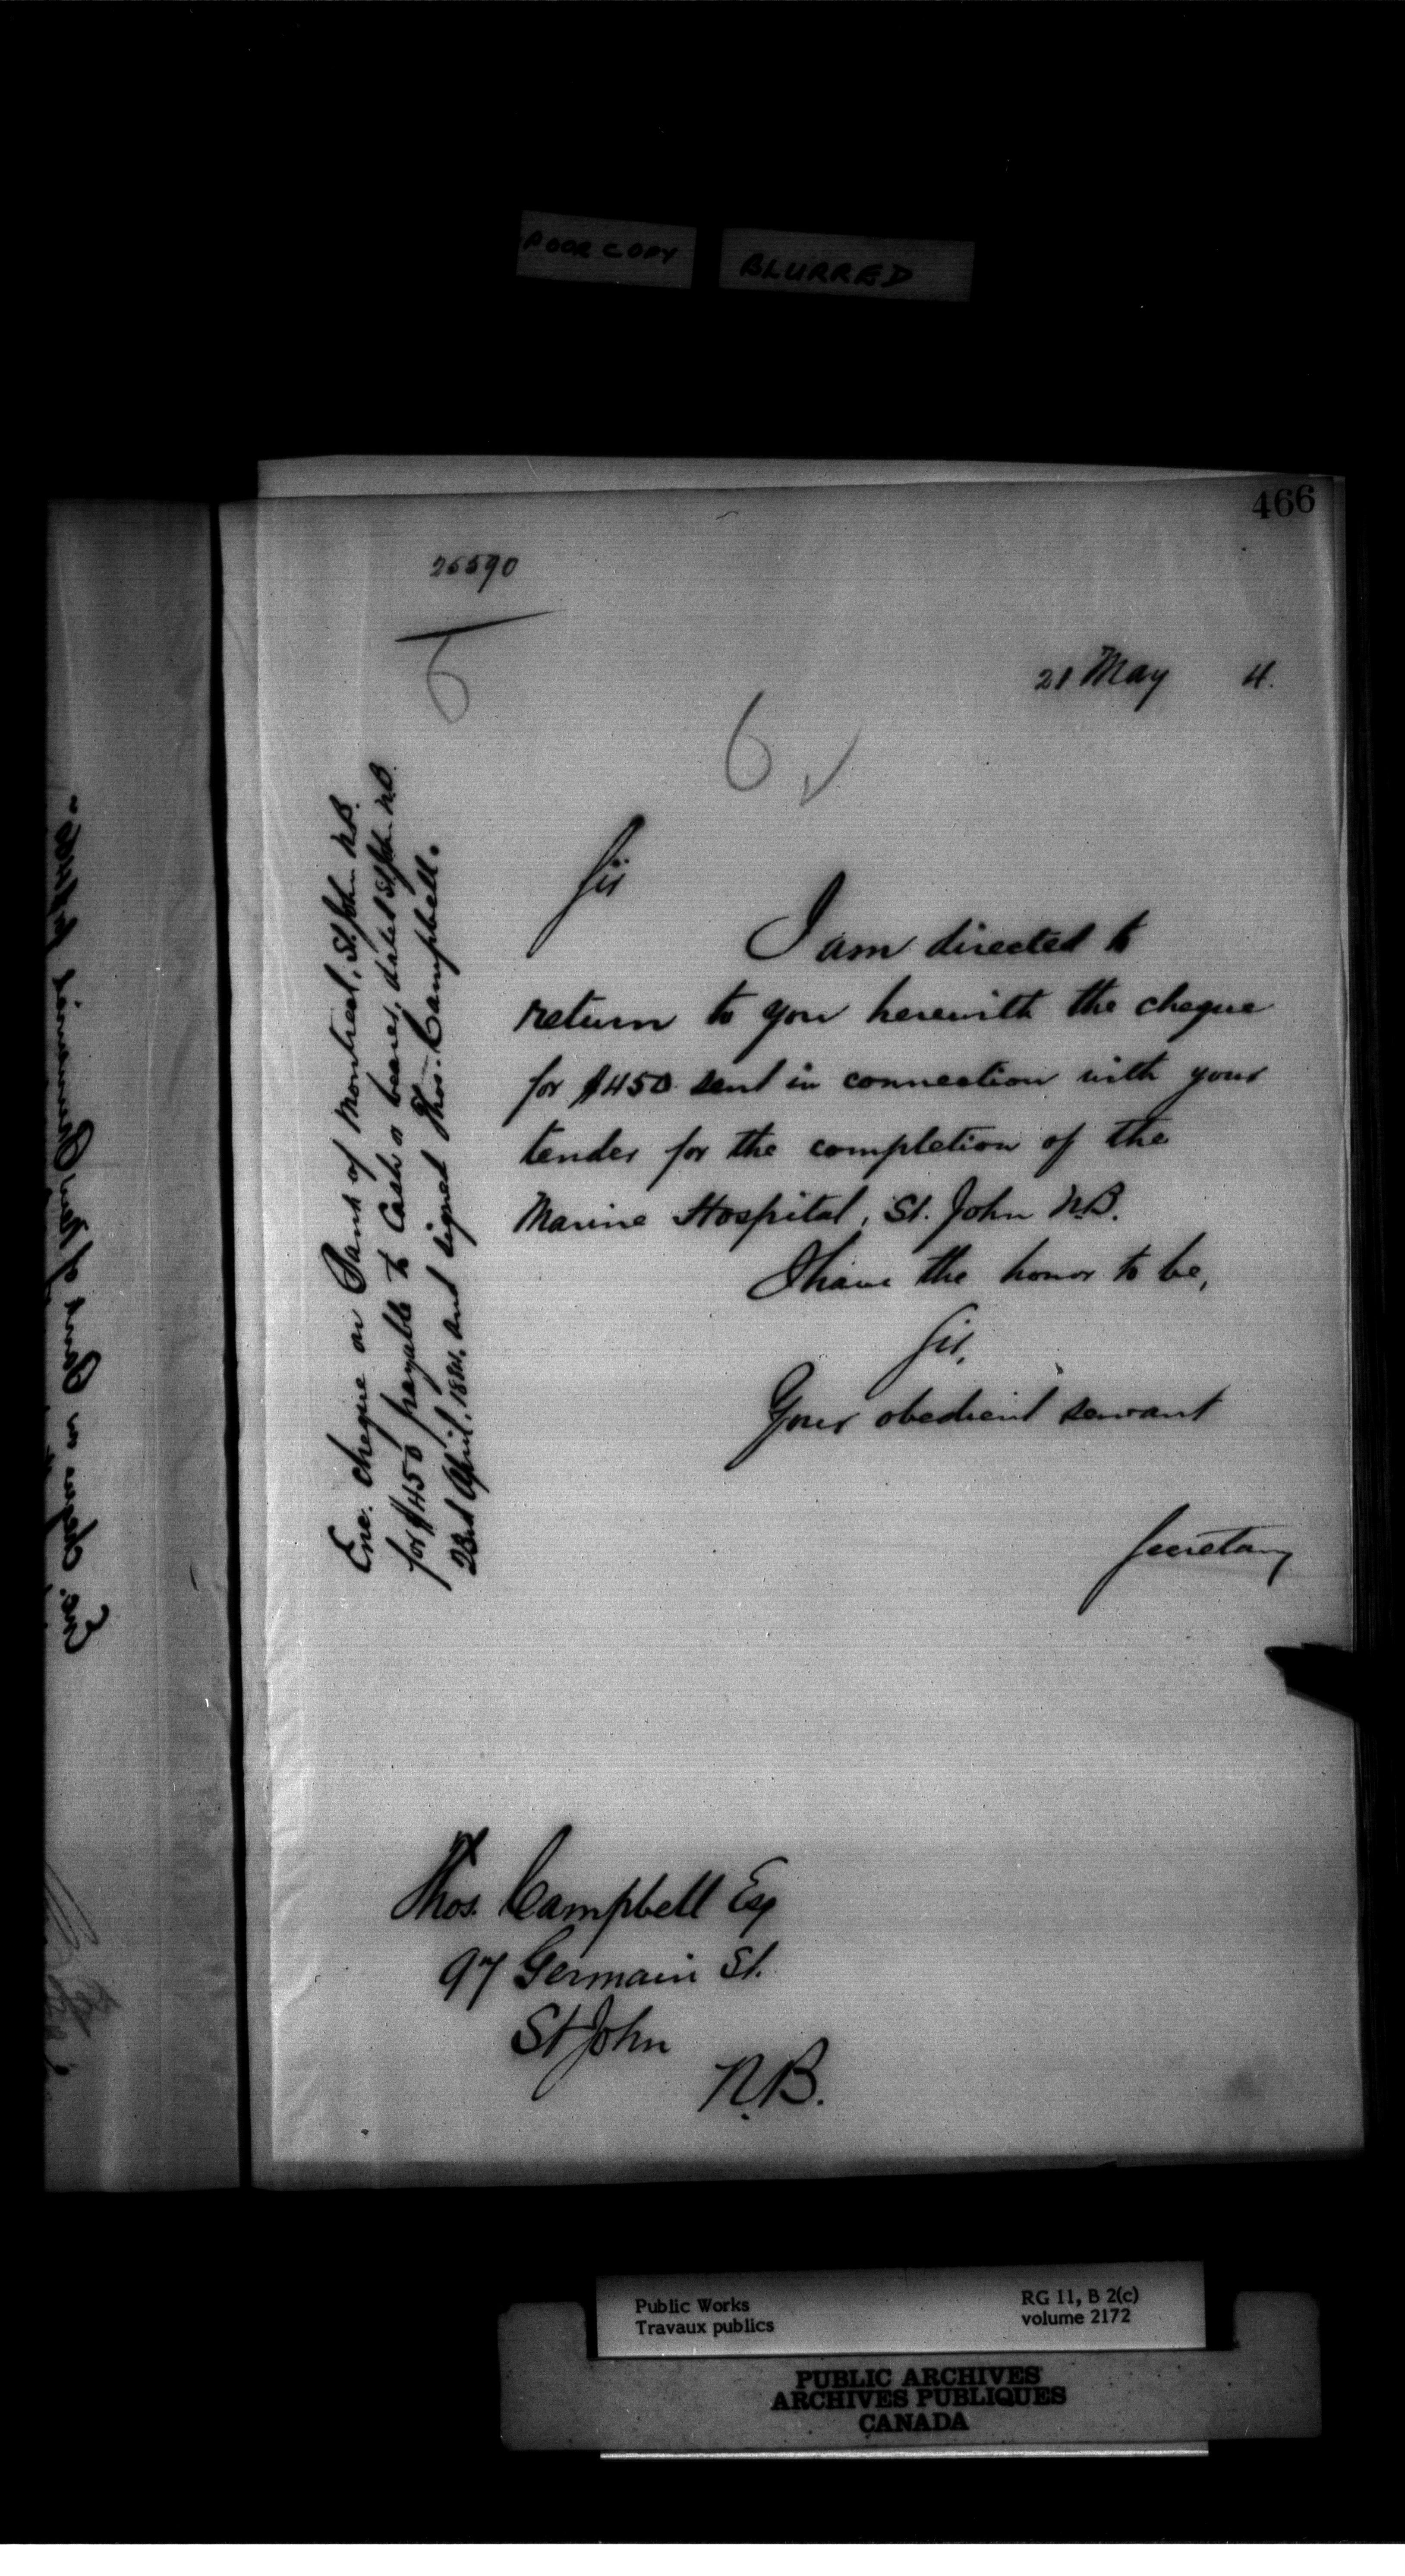 POOR COPY BLURRED
466
25590
6
21 May 4.
6 ✓
Sir
I am directed to
return to you herewith the cheque
for $450 sent in connection with your
tender for the completion of the
Marine Hospital, St. John N.B.
I have the honor to be,
Sir,
Your obedient servant
Secretary
Enc. cheque on Bank of Montreal, St. John N.B.
for $450 payable to Cash or bearer, dated St. John N.B.
23rd April, 1884, and signed Thos. Campbell.
Thos. Campbell Esq
97 Germain St.
St John
N.B.
Enc. cheque on Bank of New Brunswick
Public Works
Travaux publics
RG 11, B 2(c)
volume 2172
PUBLIC ARCHIVES
ARCHIVES PUBLIQUES
CANADA